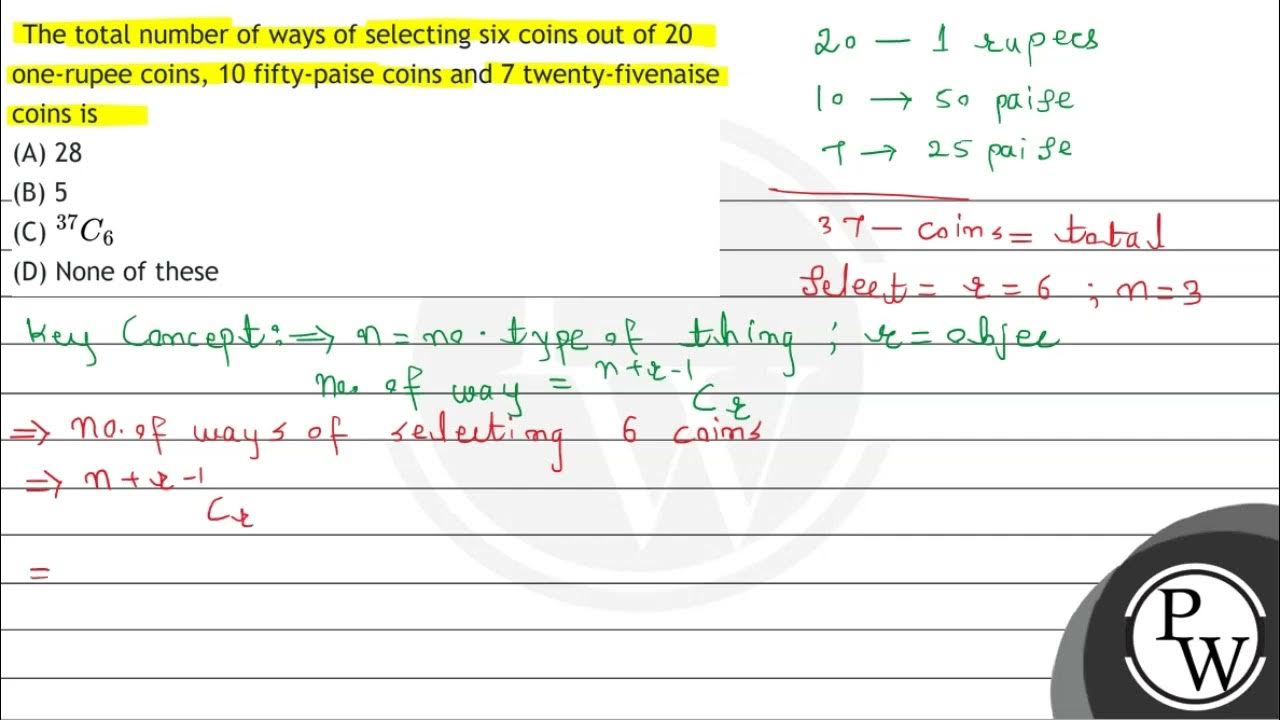 The total number of ways of selecting six coins out of 20
one-rupee coins, 10 fifty-paise coins and 7 twenty-fivenaise
coins is
(A) 28
(B) 5
(C) ³⁷C₆
(D) None of these
20 — 1 rupees
10 → 50 paise
7 → 25 paise
37 — coins = total
Select = r = 6 ; n = 3
Key Concept: ⇒ n = no. type of thing ; r = objec
no. of way = ⁿ⁺ʳ⁻¹Cᵣ
⇒ no. of ways of selecting 6 coins
⇒ ⁿ⁺ʳ⁻¹Cᵣ
=
PW